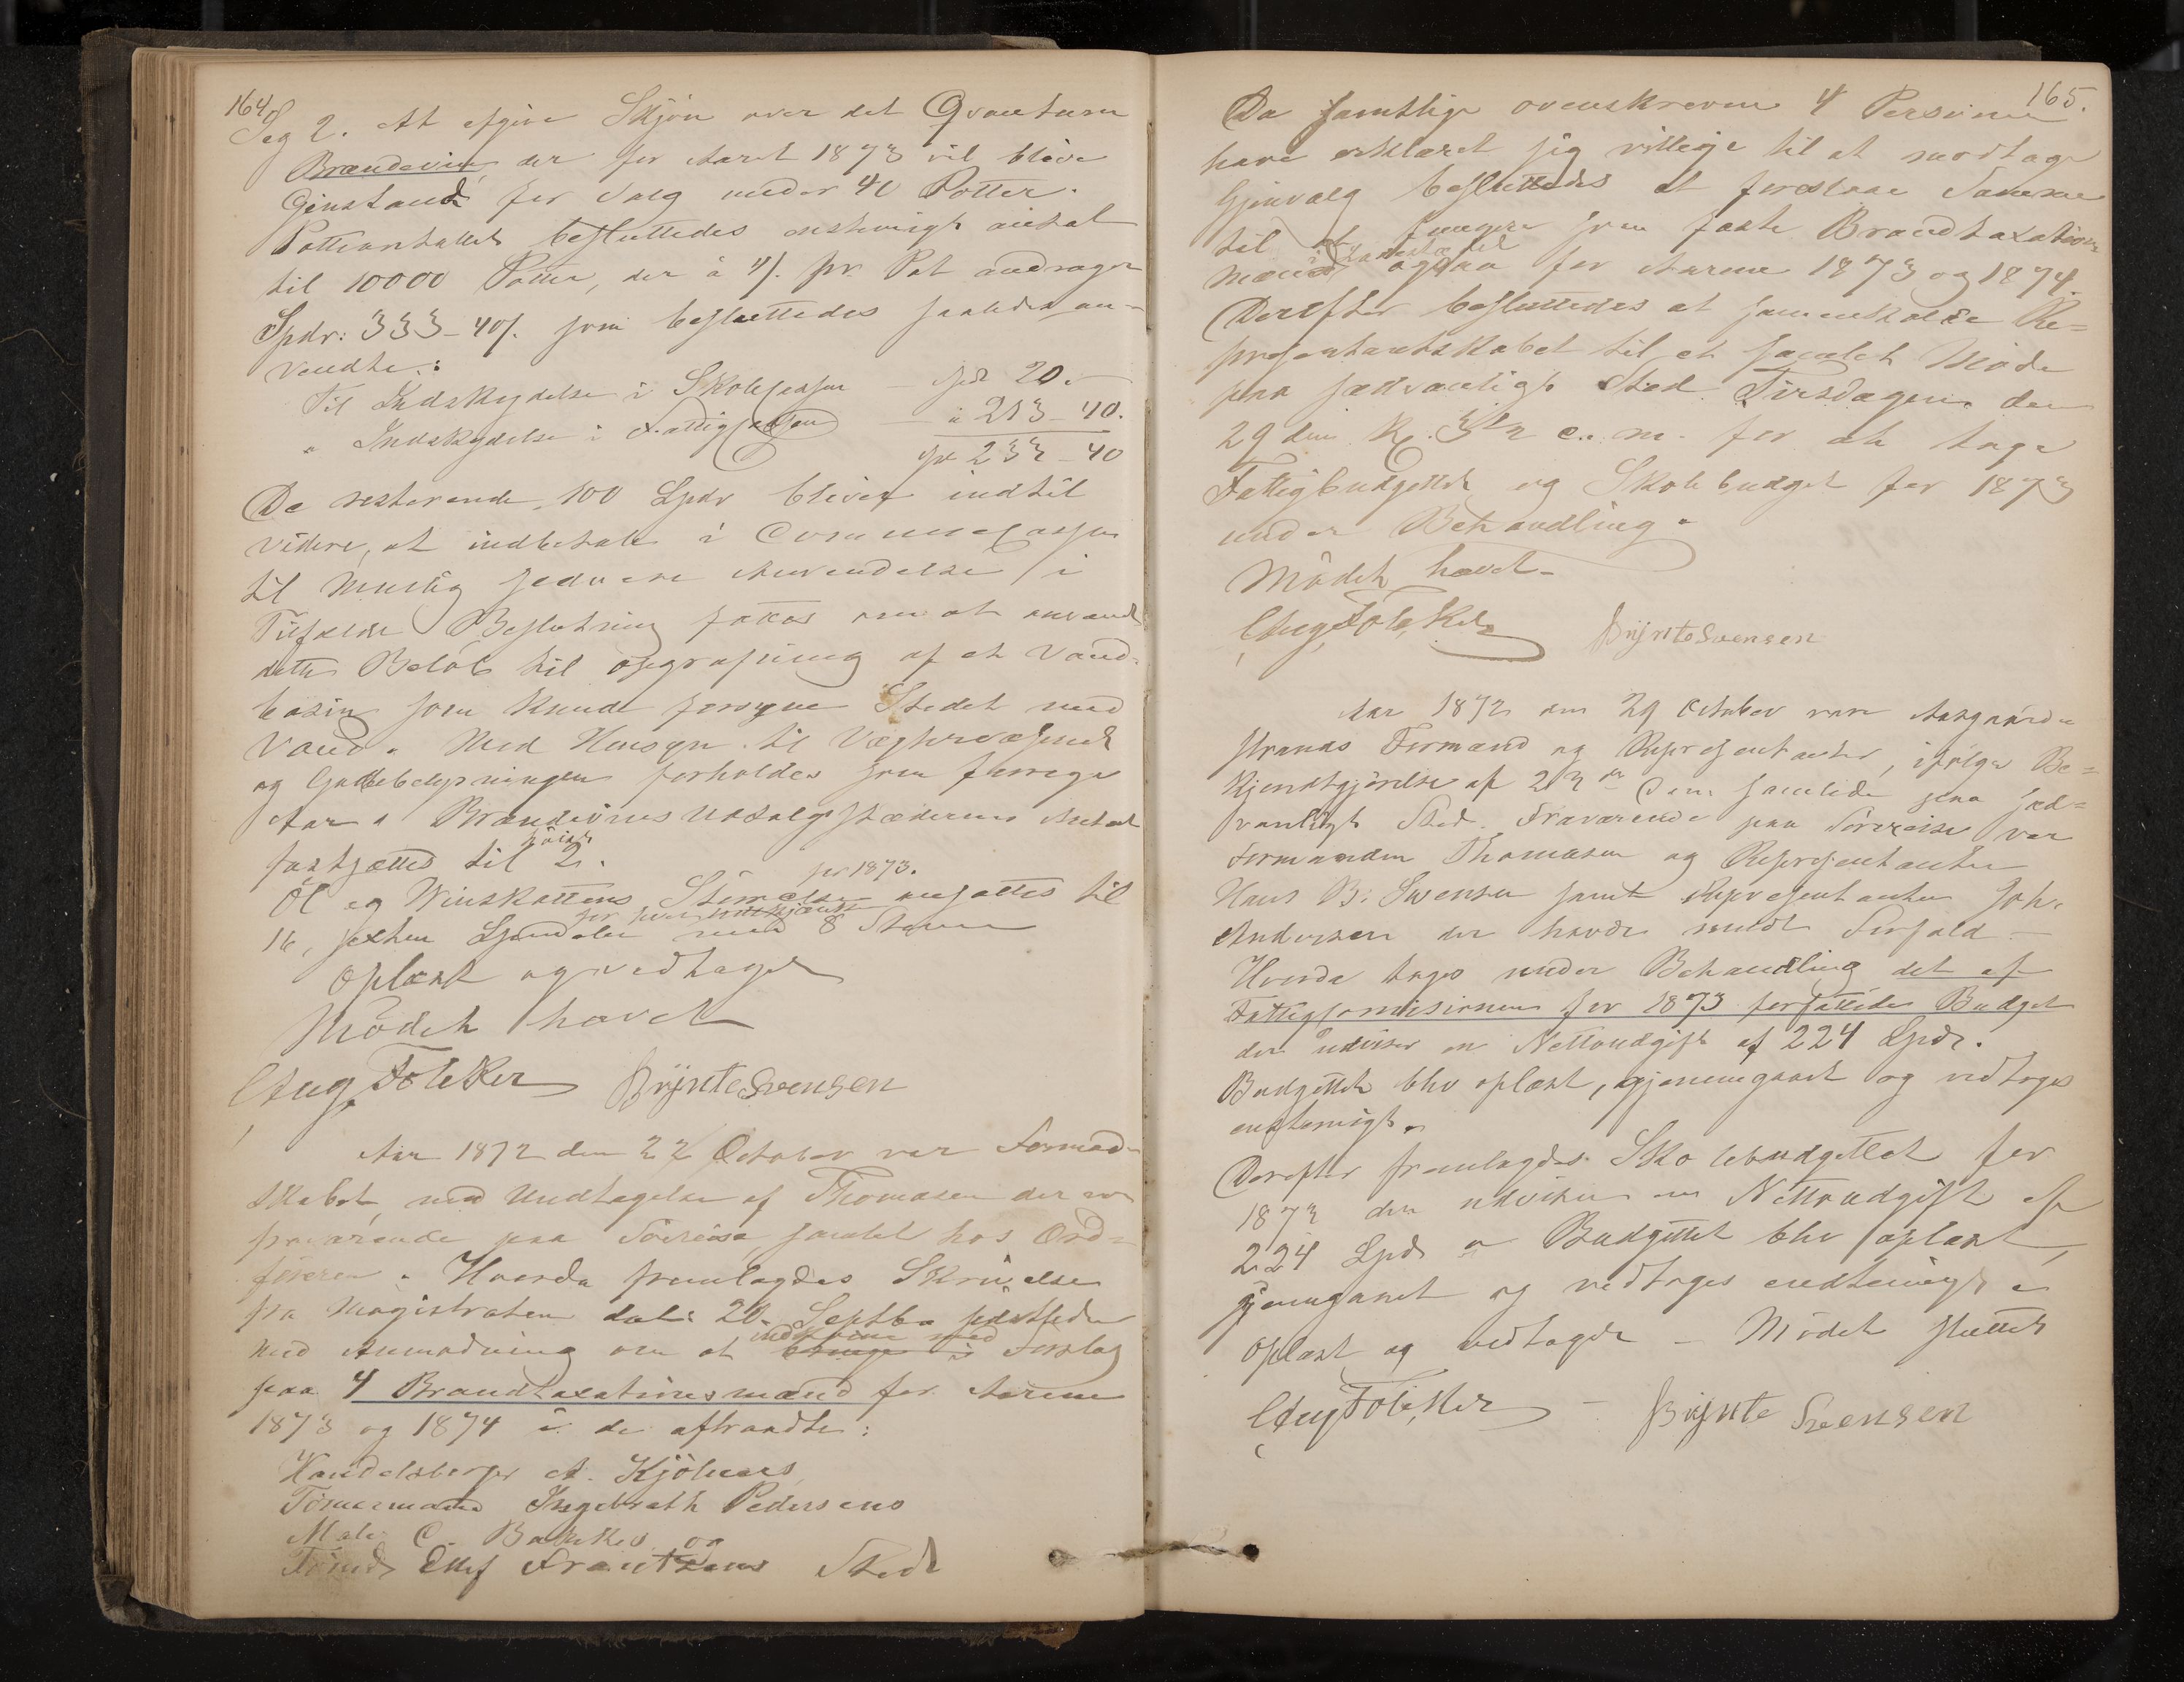 164
Sag 2. At afgive Skjön over det Qvantum
Brændeviin, der for Aaret 1873 vil blive
Gjenstand for Salg under 40 Potter.
Potteantallet besluttedes enstemigt antal
til 10000 Potter, der à 4/. pr. Pot andrager
Spdr: 333-40/. som besluttedes saaledes an-
vendte:
Til Indskydelse i Skolecassen – Spd 20. –
" Indskydelse i Fattigcassen – " 213-40.
Spd 233-40
De resterende 100 Spdr bliver indtil
videre, at indbetale i Communecassen
til mulig senere Anvendelse i
Tilfælde Beslutning fattes om at anvende
dette Belöb til opgrafning af et Vand-
basin som kunde forsyne Stedet med
Vand. Med Hensyn til Vægtervæsenet
og Gadebelysningen forholdes som forrige
Aar. Brændeviins Udsalgsstædernes Antal
fastsættes til 2.
pr 1873.
Öl og Vinskattens Störrelse ansættes til
16, sexten Spesidaler med 8 Stemmer
Oplæst og vedtaget
Mödet hævet
Aug. Fölcker Brynte Svensen
Aar 1872 den 22 October var Formand-
skabet, med Undtagelse af Thomasen der er
fraværende paa Söreise, samlet hos Ord-
föreren. Hvorda fremlagdes Skrivelse
fra Magistraten dat: 20. Septbr sidstleden
indkomme med
med Anmodning om at bringe i Forslag
paa 4 Brandtaxationsmænd for Aarene
1873 og 1874 i de aftraadte:
Handelsborger A. Kjölners
Tömmermand Ingebreth Pedersens
Maler C. Bakkes og
Tömds Ellef Frantzens Sted
165.
Da samtlige ovenskrevne 4 Personer
have erklæret sig villige til at modtage
Gjenvalg besluttedes at foreslaae Samme
til at fungere som faste Brandtaxations
mænd ogsaa for Aarene 1873 og 1874.
Derefter besluttedes at sammenkalde Re-
præsentantskabet til et samlet Möde
paa sædvanligt Sted Tirsdagen den
29 den Kl. 3 1/2 e. m. for at tage
Fattigbudgettet og Skolebudget for 1873
under Behandling.
Mödet hævet –
Aug. Fölcker Brynte Svensen
Aar 1872 den 29 October vare Aasgaard-
strands Formænd og Repræsentanter, ifölge Be-
kjendtgjörelse af 23de ds. samlede paa sæd-
vanligt Sted. Fraværende paa Söreise var
Formanden Thomasen og Repræsentanten
Hans B. Svensen samt Repræsentanten Joh.
Andersen der havde meldt Forfald –
Hvorda toges under Behandling det af
Fattigcomisionen for 1873 forfattede Budget
der udviser en Nettoudgift af 224 Spdr.
Budgettet blev oplæst, gjennemgaaet og vedtoges
enstemigt.
Derefter fremlagdes Skolebudgettet for
1873 der udviser en Nettoudgift af
224 Spdr. Budgettet blev oplæst,
gjennemgaaet og vedtoges enstemigt.
Oplæst og vedtaget – Mödet sluttet
Aug. Fölcker – Brynte Svensen